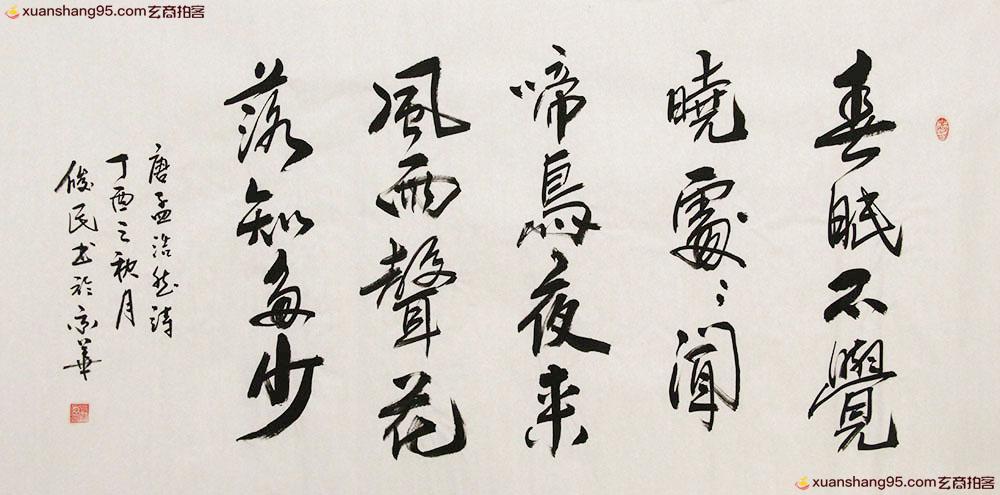 xuanshang95.com玄商拍客
xuanshang95.com玄商拍客
春眠不覺
曉處〻聞
啼鳥夜来
風雨聲花
落知多少
唐孟浩然詩
丁酉之秋月
俊民书於京華
xuanshang95.com玄商拍客